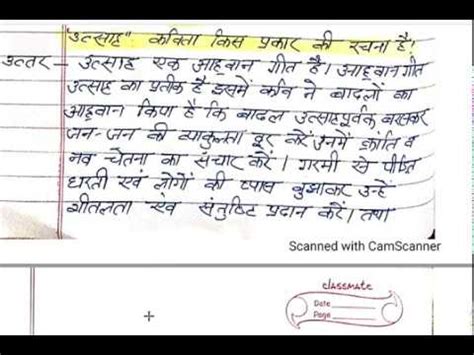 "उत्साह" कविता किस प्रकार की रचना है?
उत्तर – उत्साह एक आह्वान गीत है। आह्वान गीत
उत्साह का प्रतीक है इसमें कवि ने बादलों का
आह्वान किया है कि बादल उत्साहपूर्वक बरसकर
जन-जन की व्याकुलता दूर करें उनमें क्रांति व
नव चेतना का संचार करें। गरमी से पीड़ित
धरती एवं लोगों की प्यास बुझाकर उन्हें
शीतलता एंव संतुष्टि प्रदान करें। तथा
Scanned with CamScanner
classmate
Date
Page